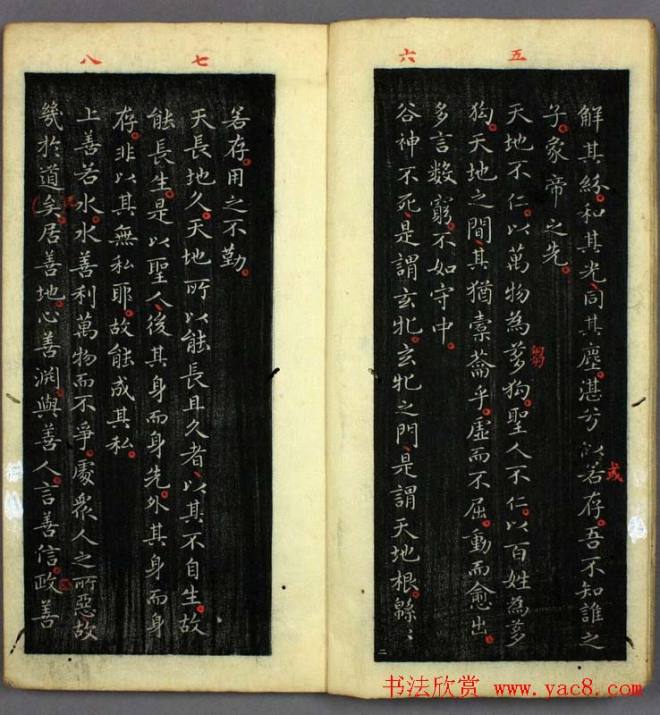 五
六
解其紛和其光同其塵湛兮似若存吾不知誰之
或
子象帝之先
天地不仁以萬物為芻狗聖人不仁以百姓為芻
狗天地之間其猶橐籥乎虛而不屈動而愈出
多言數窮不如守中
谷神不死是謂玄牝玄牝之門是謂天地根綿〻
二
七
八
若存用之不勤
天長地久天地所以能長且久者以其不自生故
能長生是以聖人後其身而身先外其身而身
存非以其無私耶故能成其私
上善若水水善利萬物而不爭處衆人之所惡故
幾於道矣居善地心善淵與善人言善信政善
书法欣赏 www.yac8.com